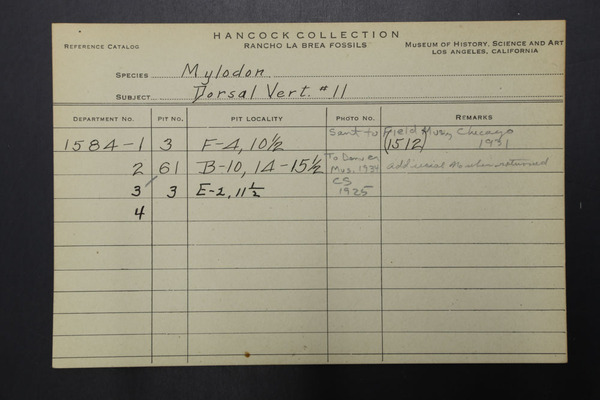 HANCOCK COLLECTION
REFERENCE CATALOG RANCHO LA BREA FOSSILS MUSEUM OF HISTORY, SCIENCE AND ART
LOS ANGELES, CALIFORNIA
SPECIES Mylodon
SUBJECT Dorsal Vert. #11
DEPARTMENT NO. PIT NO. PIT LOCALITY PHOTO NO. REMARKS
Sent to Field Mus, Chicago
1584-1 3 F-4, 10 1/2 (1512) 1931
2 61 B-10, 14-15 1/2 To Denver Mus. 1934 add serial No when returned
3 3 E-2, 11 1/2 CS 1925
4